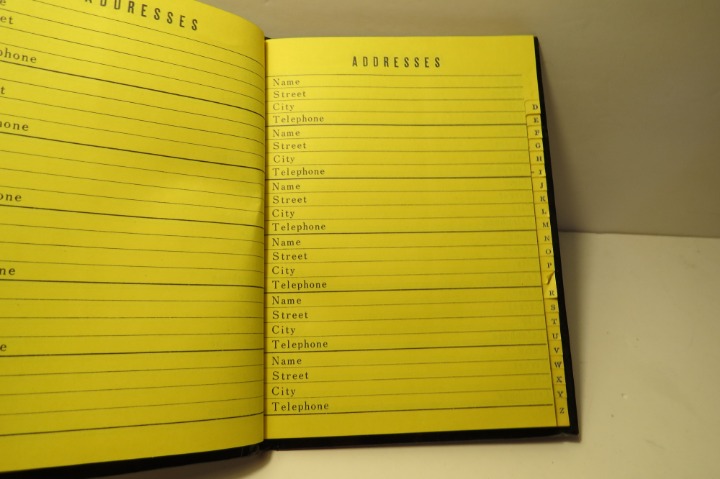 ADDRESSES
et
phone
t
one
one
ne
e
ADDRESSES
Name
Street
City
Telephone
Name
Street
City
Telephone
Name
Street
City
Telephone
Name
Street
City
Telephone
Name
Street
City
Telephone
Name
Street
City
Telephone
D
E
F
G
H
I
J
K
L
M
N
O
P
R
S
T
U
V
W
X
Y
Z